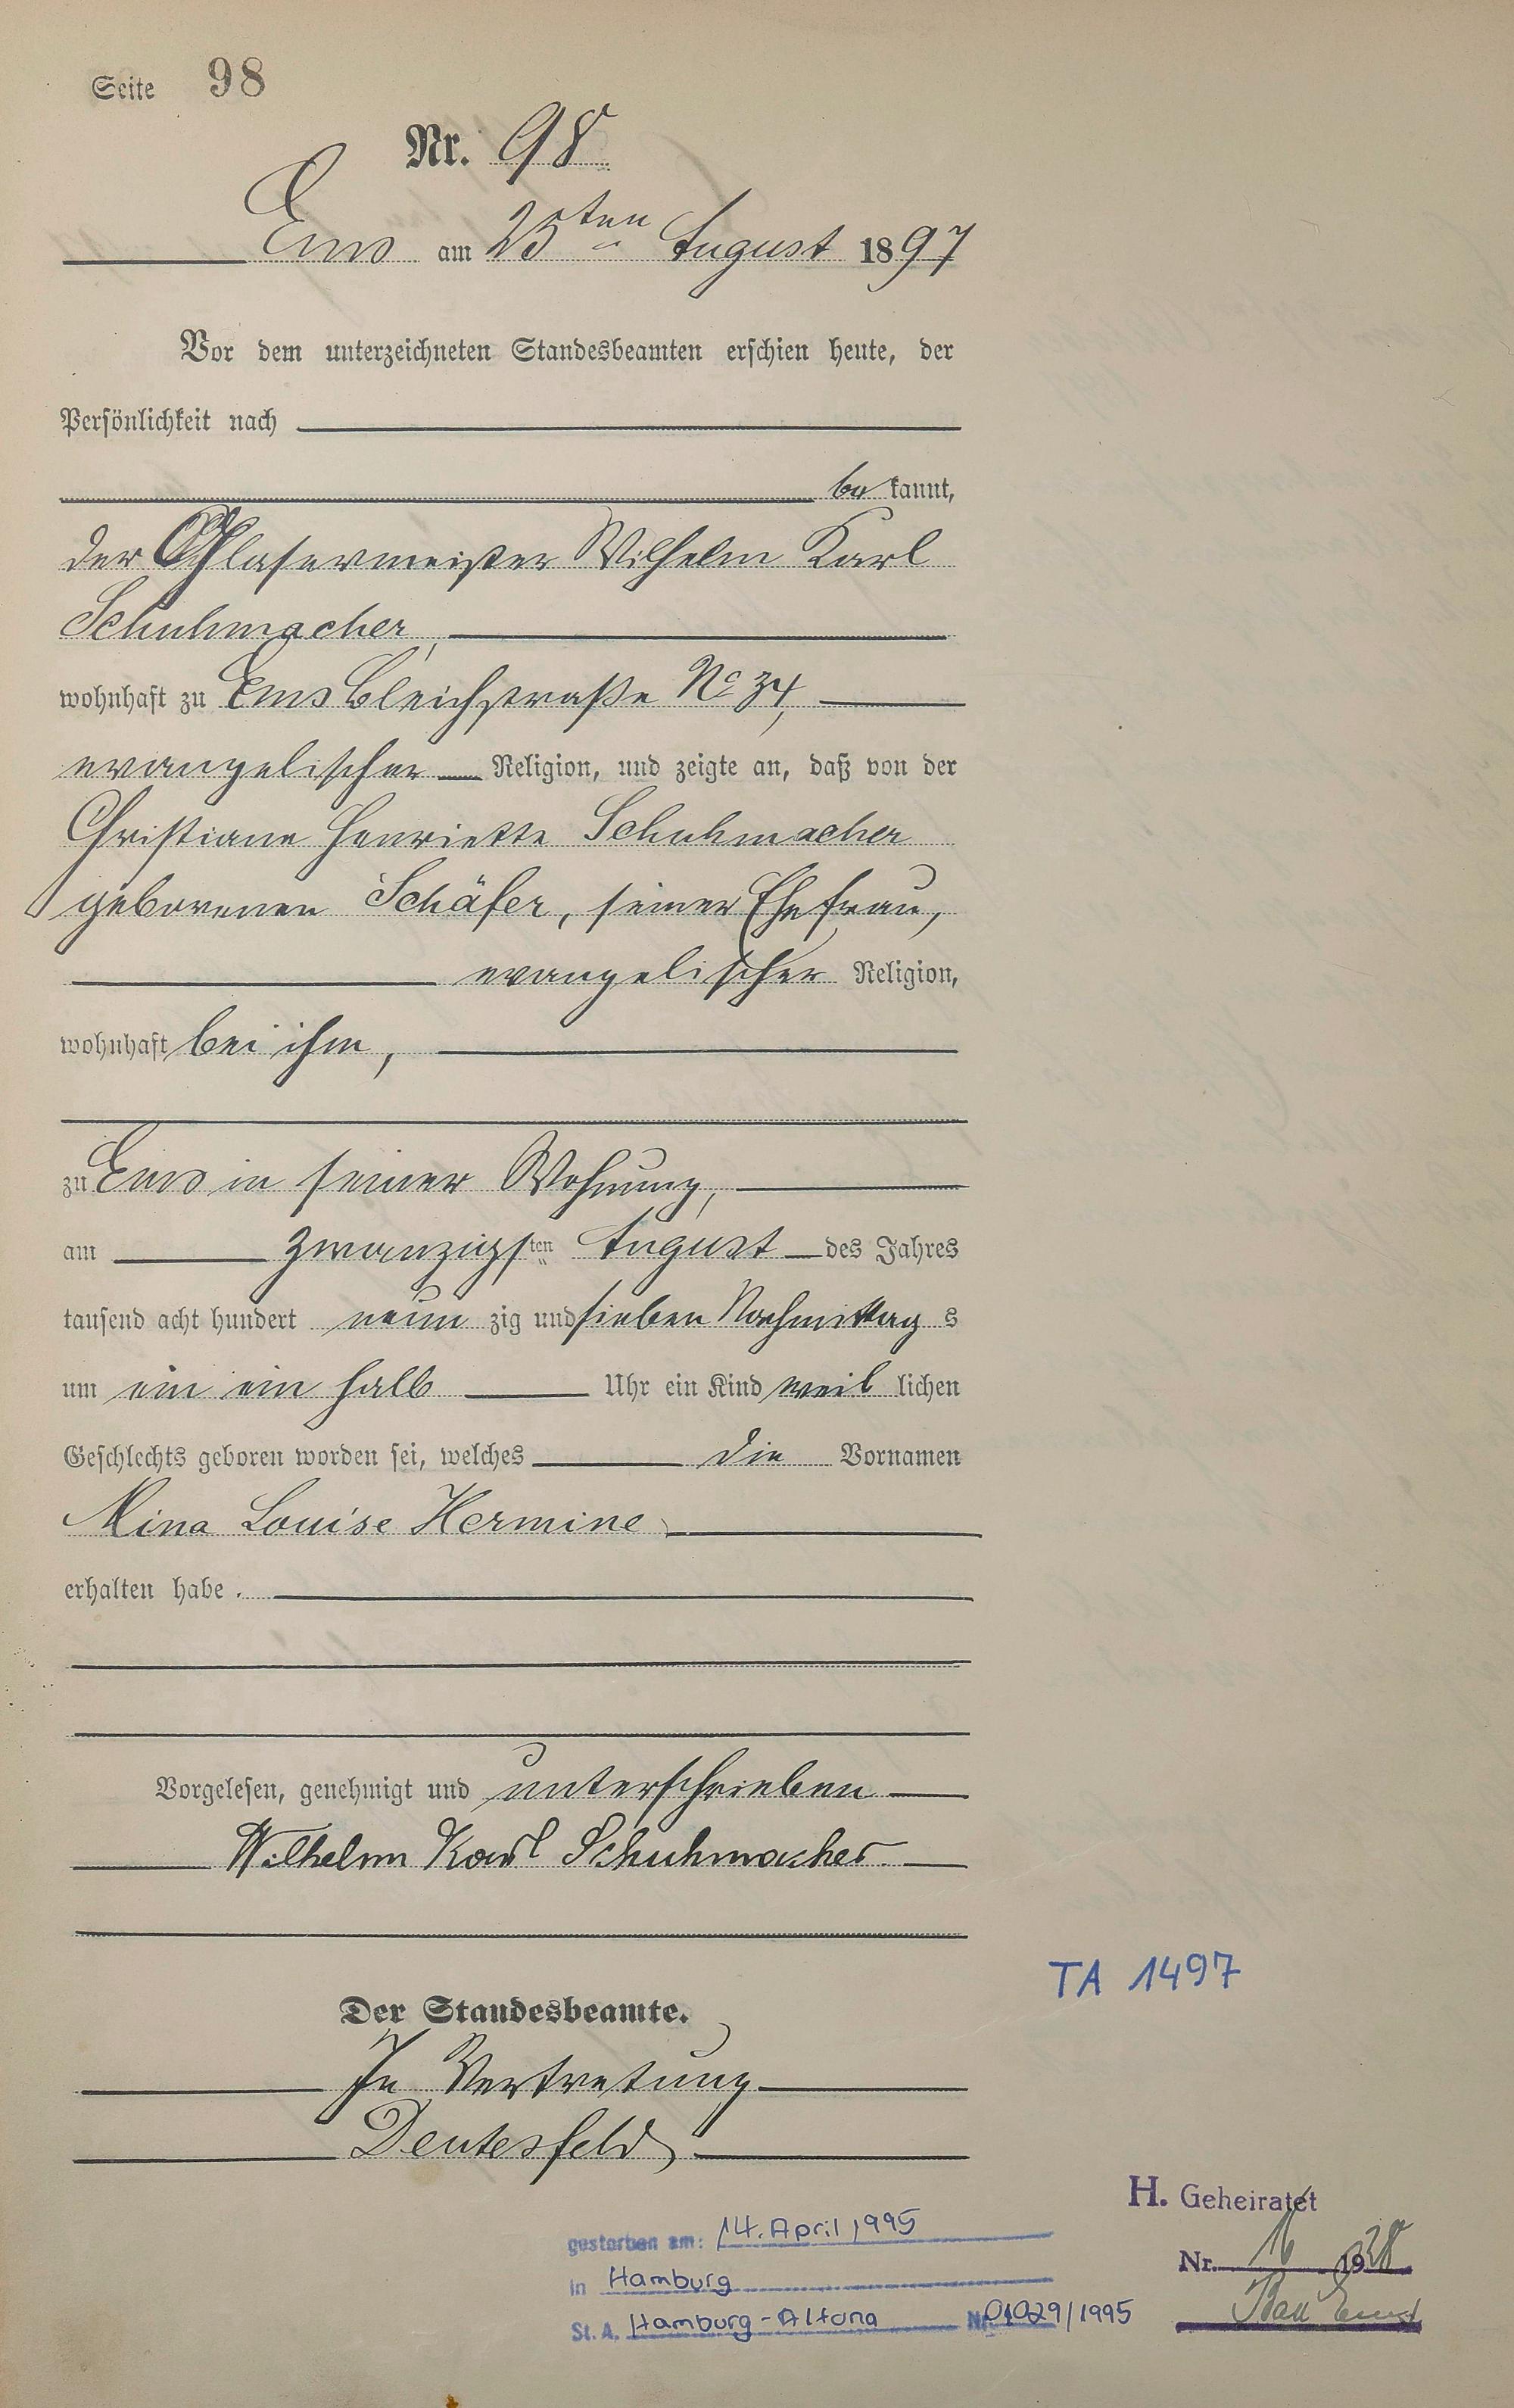 Seite 98
Nr. 98
Ems am 25ten August 1897
Vor dem unterzeichneten Standesbeamten erschien heute, der
Persönlichkeit nach
be kannt,
der Glasermeister Wilhelm Karl
Schuhmacher,
wohnhaft zu Ems Bleichstraße No 34,
evangelischer Religion, und zeigte an, daß von der
Christiane Henriette Schuhmacher
geborenen Schäfer, seiner Ehefrau,
evangelischer Religion,
wohnhaft bei ihm,
zu Ems in seiner Wohnung,
am zwanzigsten August des Jahres
tausend acht hundert neun zig und sieben Nachmittag s
um ein ein halb Uhr ein Kind weib lichen
Geschlechts geboren worden sei, welches die Vornamen
Mina Louise Hermine
erhalten habe.
Vorgelesen, genehmigt und unterschrieben
Wilhelm Karl Schuhmacher.
TA 1497
Der Standesbeamte.
In Vertretung
Deutesfeld
H. Geheiratet
Nr. 16 1938
Bad Ems
gestorben am: 14. April 1995
in Hamburg
St. A. Hamburg-Altona Nr. 01029/1995